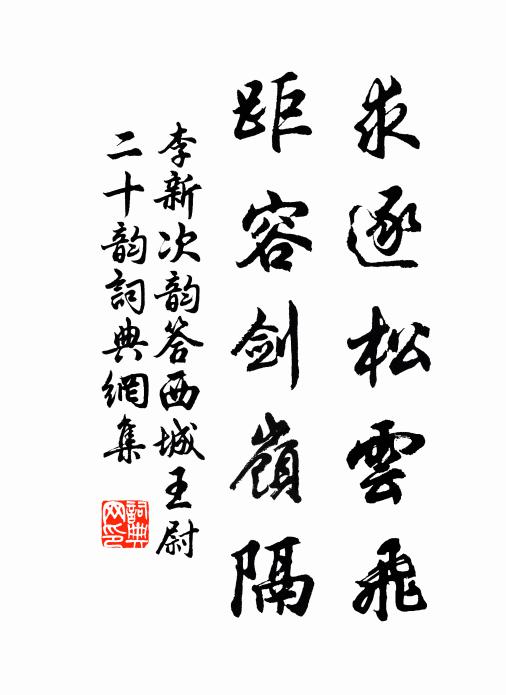 求逐松雲飛
距容劍嶺隔
李新次韵答西城王尉
二十韵詞典網集
詞典
网印